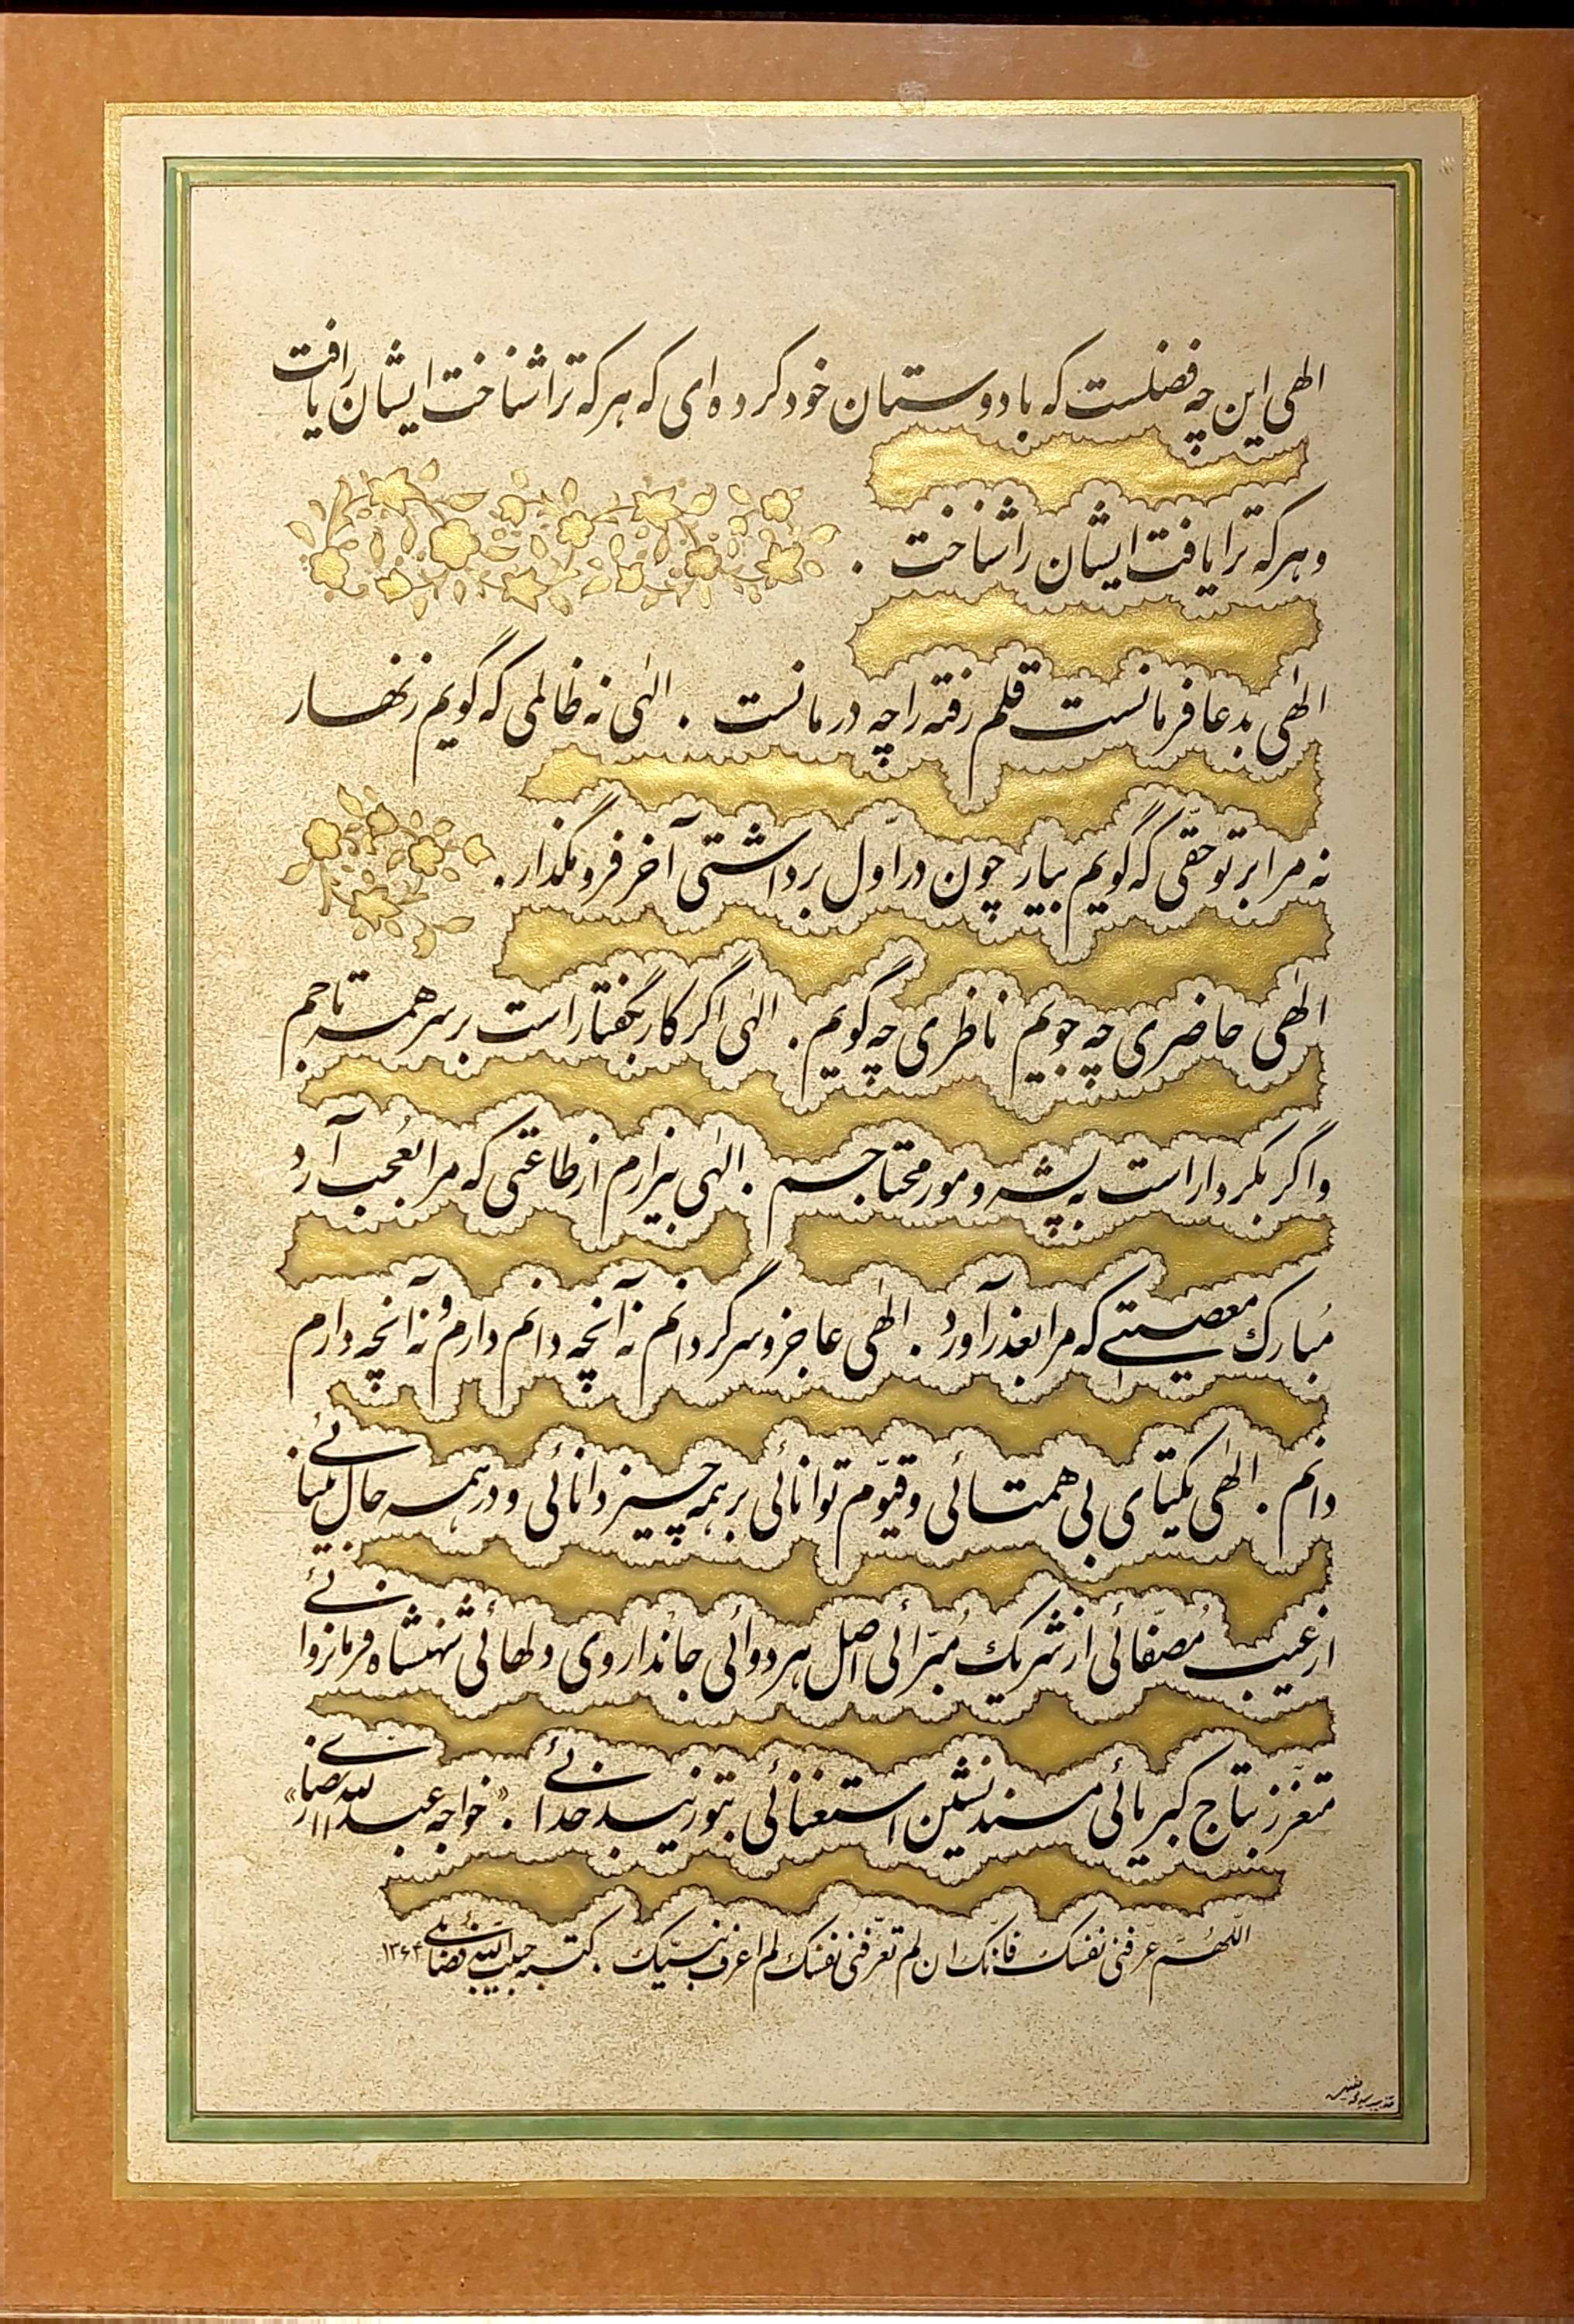 الهی این چه فضلست که با دوستان خود کرده‌ای که هر که ترا شناخت ایشان را یافت
و هر که ترا یافت ایشان را شناخت .
الٰهی بدعا فرمانست قلم رفته را چه درمانست . الٰهی نه ظالمی که گویم زنهار
نه مرا بر تو حقّی که گویم بیار چون در اوّل برداشتی آخر فرو مگذار .
الٰهی حاضری چه جویم ناظری چه گویم . الٰهی اگر کار بگفتار است بر سر همه تاجم
و اگر بکردار است به پشه و مور محتاجم . الٰهی بیزارم از طاعتی که مرا بعُجب آرد
مُبارک معصیتی که مرا بعذر آورد . الٰهی عاجز و سرگردانم نه آنچه دانم دارم و نه آنچه دارم
دانم . الٰهی یکتای بی همتائی و قیّوم توانائی بر همه چیز دانائی و در همه حال بینائی
از عیب مُصفّائی از شریک مُبرّائی اصل هر دوائی جاندار وی دلهائی شهنشاه فرمانروائی
متعزّز بتاج کبریائی مسند نشین استغنائی بتو زیبد خدائی . «خواجه عبدالله انصاری»
اللّهُمَّ عرّفنی نفسک فانّک ان لم تعرّفنی نفسک لم اعرف نبیّک . کتبه حبیب الله فضائلی ۱۳۶۴